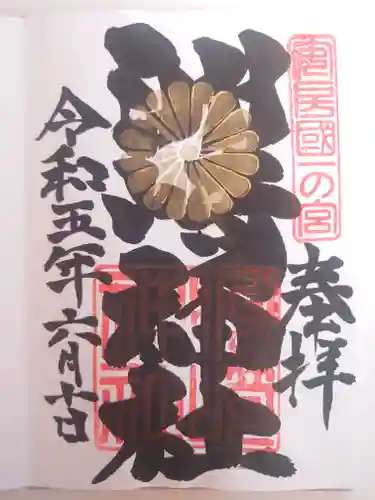 安房國一の宮
奉拝
洲崎神社
令和五年六月十日